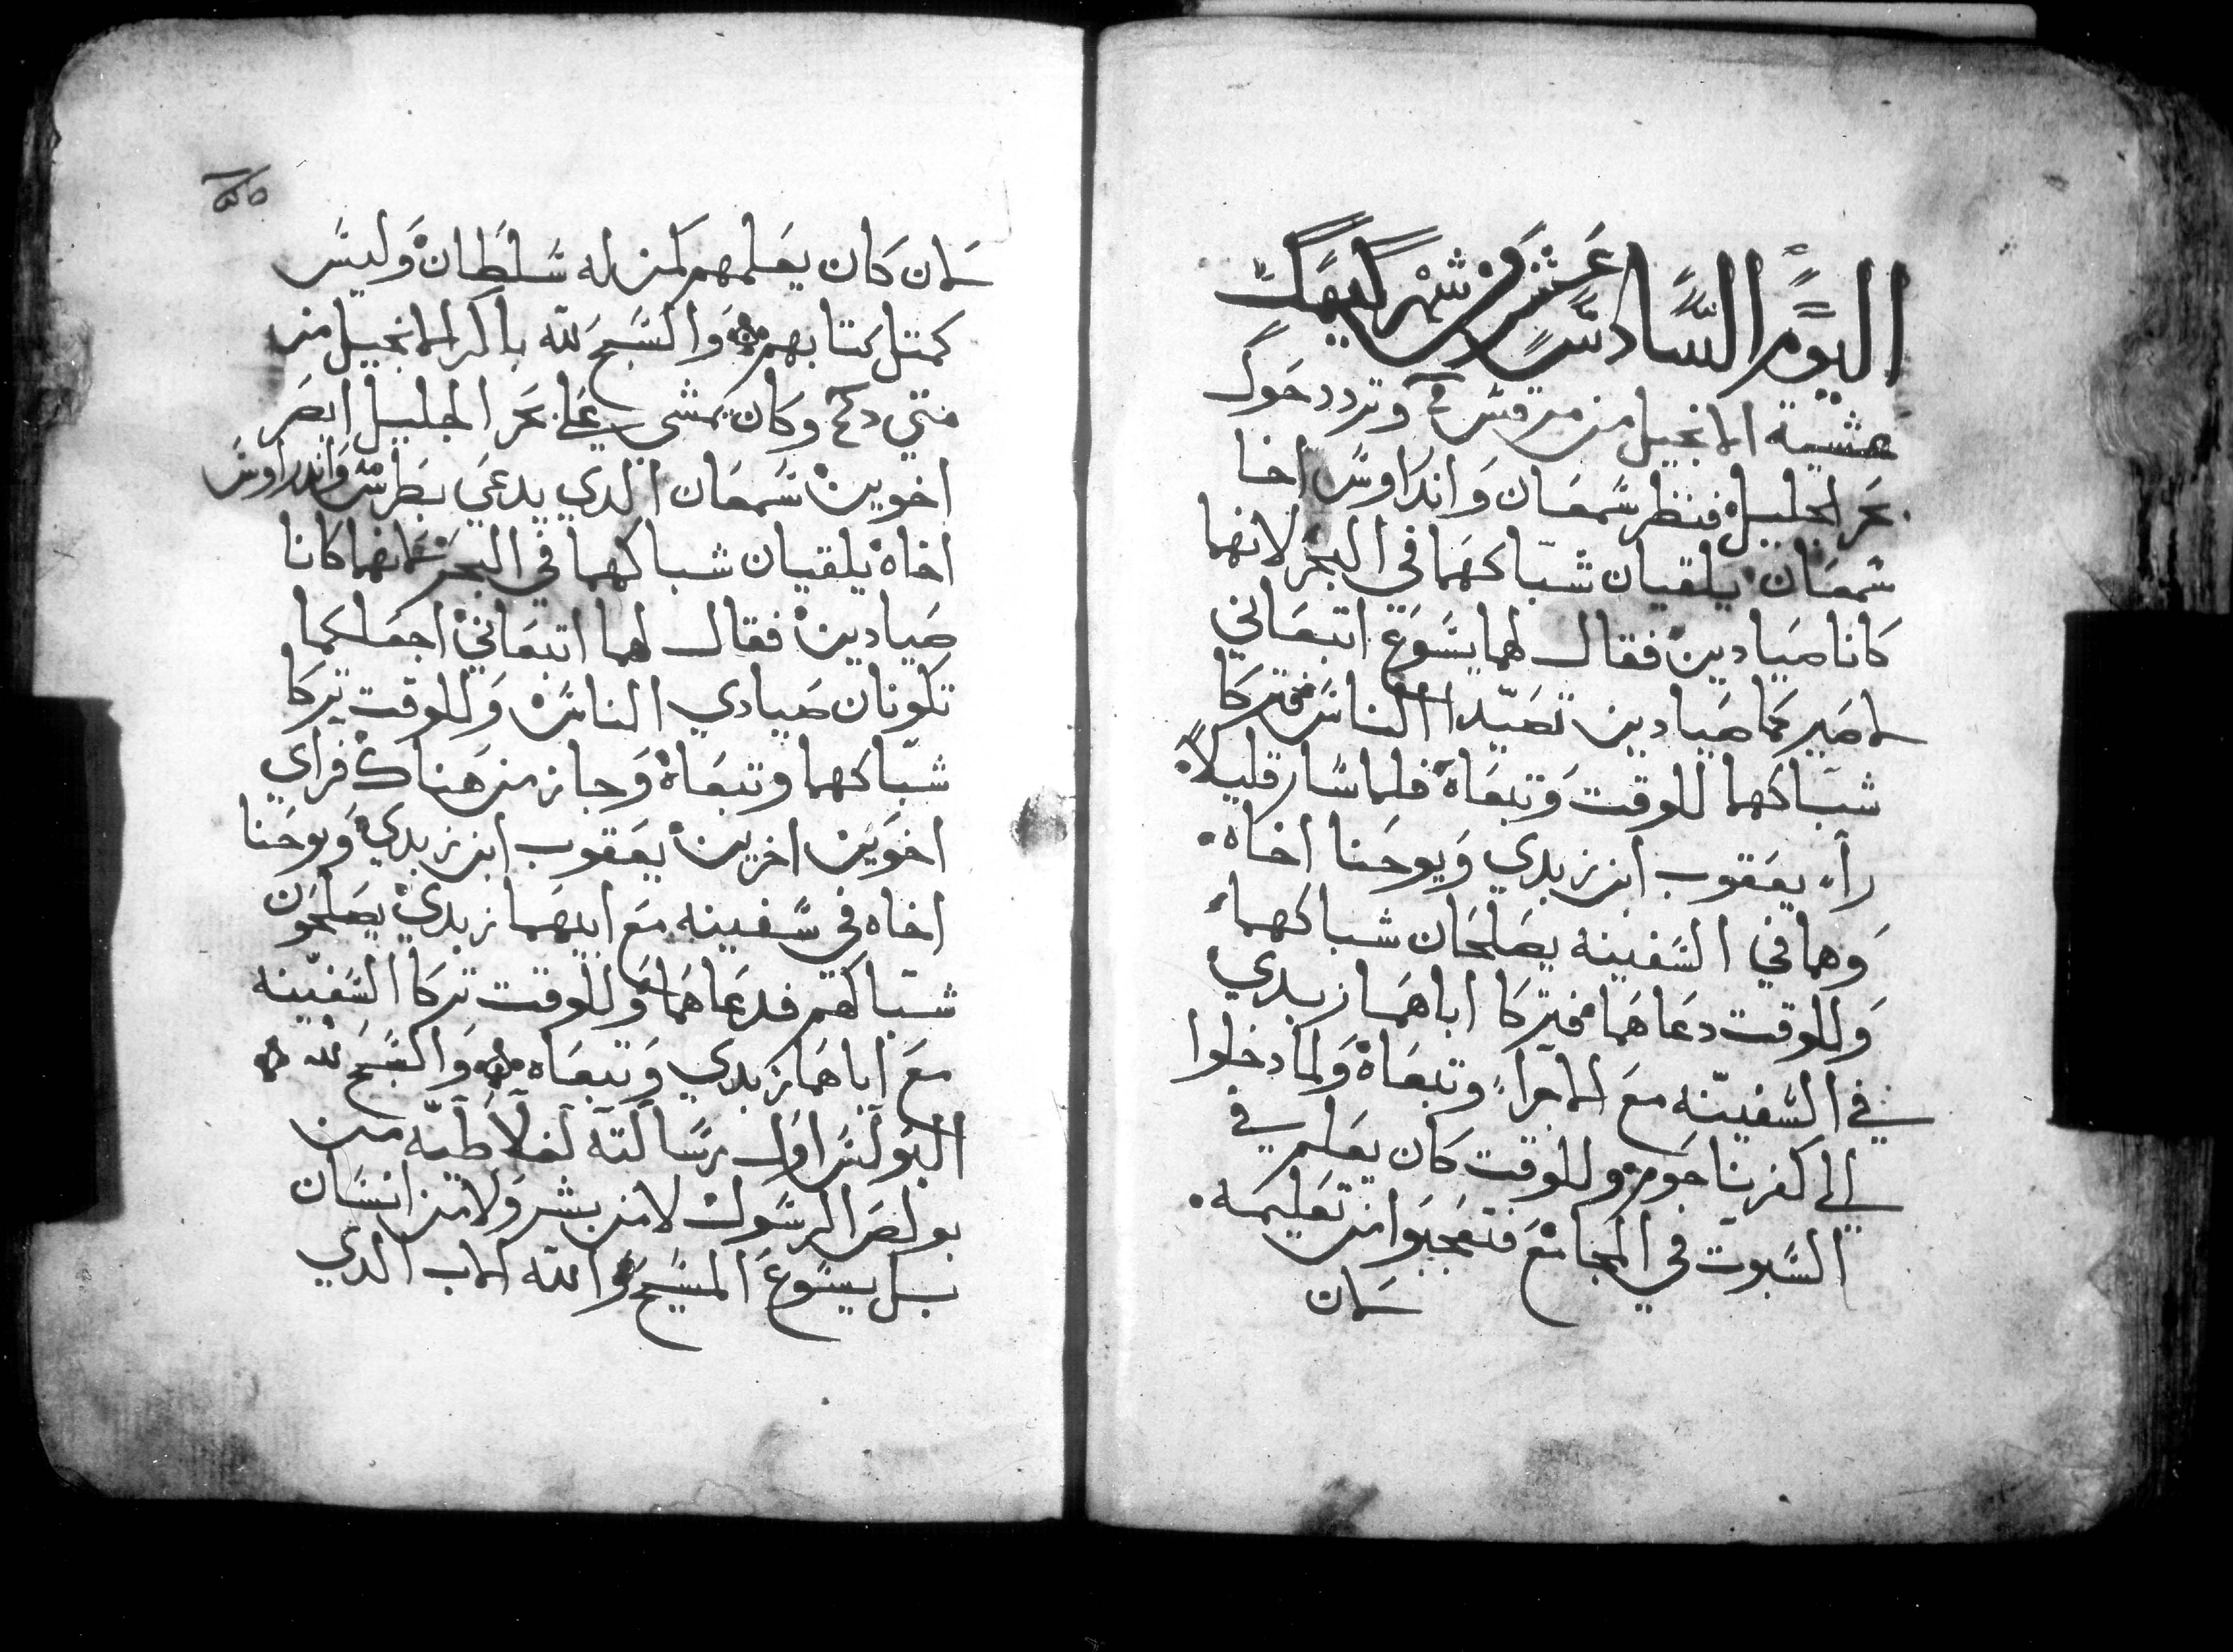 اليوم السادس عشر من شهر كيهك
عشية الانجيل من مرقس وتردد حول
بحر الجليل فنظر سمعان واندراوس اخا
سمعان يلقيان شباكهما في البحر لانهما
كانا صيادين فقال لهما يسوع اتبعاني
لاصيركما صيادين تصيدا الناس فتركا
شباكهما للوقت وتبعاه فلما سار قليلاً
راء يعقوب ابن زبدي ويوحنا اخاه
وهما في السفينه يصلحان شباكهما
وللوقت دعاهما فتركا اباهما زبدي
في السفينه مع الاجراء وتبعاه ولما دخلوا
الي كفرناحوم وللوقت كان يعلم في
السبوت في المجامع فتعجبوا من تعليمه
لان
لان كان يعلمهم كمن له سلطان وليس
كمتل كتابهم والسبح لله باكر الانجيل من
متي وكان يمشي علي بحر الجليل ابصر
اخوين سمعان الدي يدعي بطرس واندراوس
اخاه يلقيان شباكهما في البحر لانهما كانا
صيادين فقال لهما اتبعاني اجعلكما
تكونان صيادي الناس وللوقت تركا
شباكهما وتبعاه وجاز من هناك فراي
اخوين اخرين يعقوب ابن زبدي ويوحنا
اخاه في سفينه مع ابيهما زبدي يصلحون
شباكهم فدعاهما وللوقت تركا السفينه
مع اباهما زبدي وتبعاه والسبح لله
البولس اول رسالته لغلاطيه من
بولص الرسول لا من بشر ولا من انسان
بل يسوع المسيح والله الاب الدي